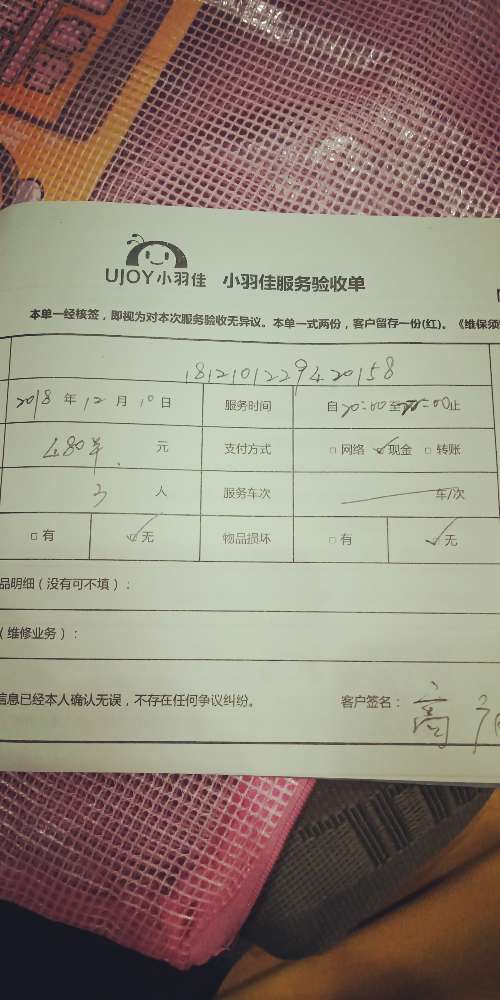 UJOY小羽佳 小羽佳服务验收单
本单一经核签，即视为对本次服务验收无异议。本单一式两份，客户留存一份(红)。《维保须
1812101229420158
2018 年 12 月 10 日 服务时间 自20:00至 :00止
480 元 支付方式 □网络 ☑现金 □转账
3 人 服务车次 车/次
□有 ☑无 物品损坏 □有 ☑无
品明细（没有可不填）：
（维修业务）：
信息已经本人确认无误，不存在任何争议纠纷。 客户签名： 高